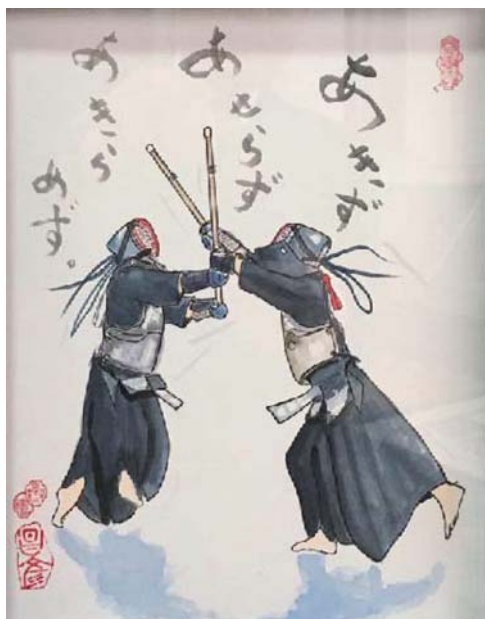 あきず
あせらず
あきら
めず。